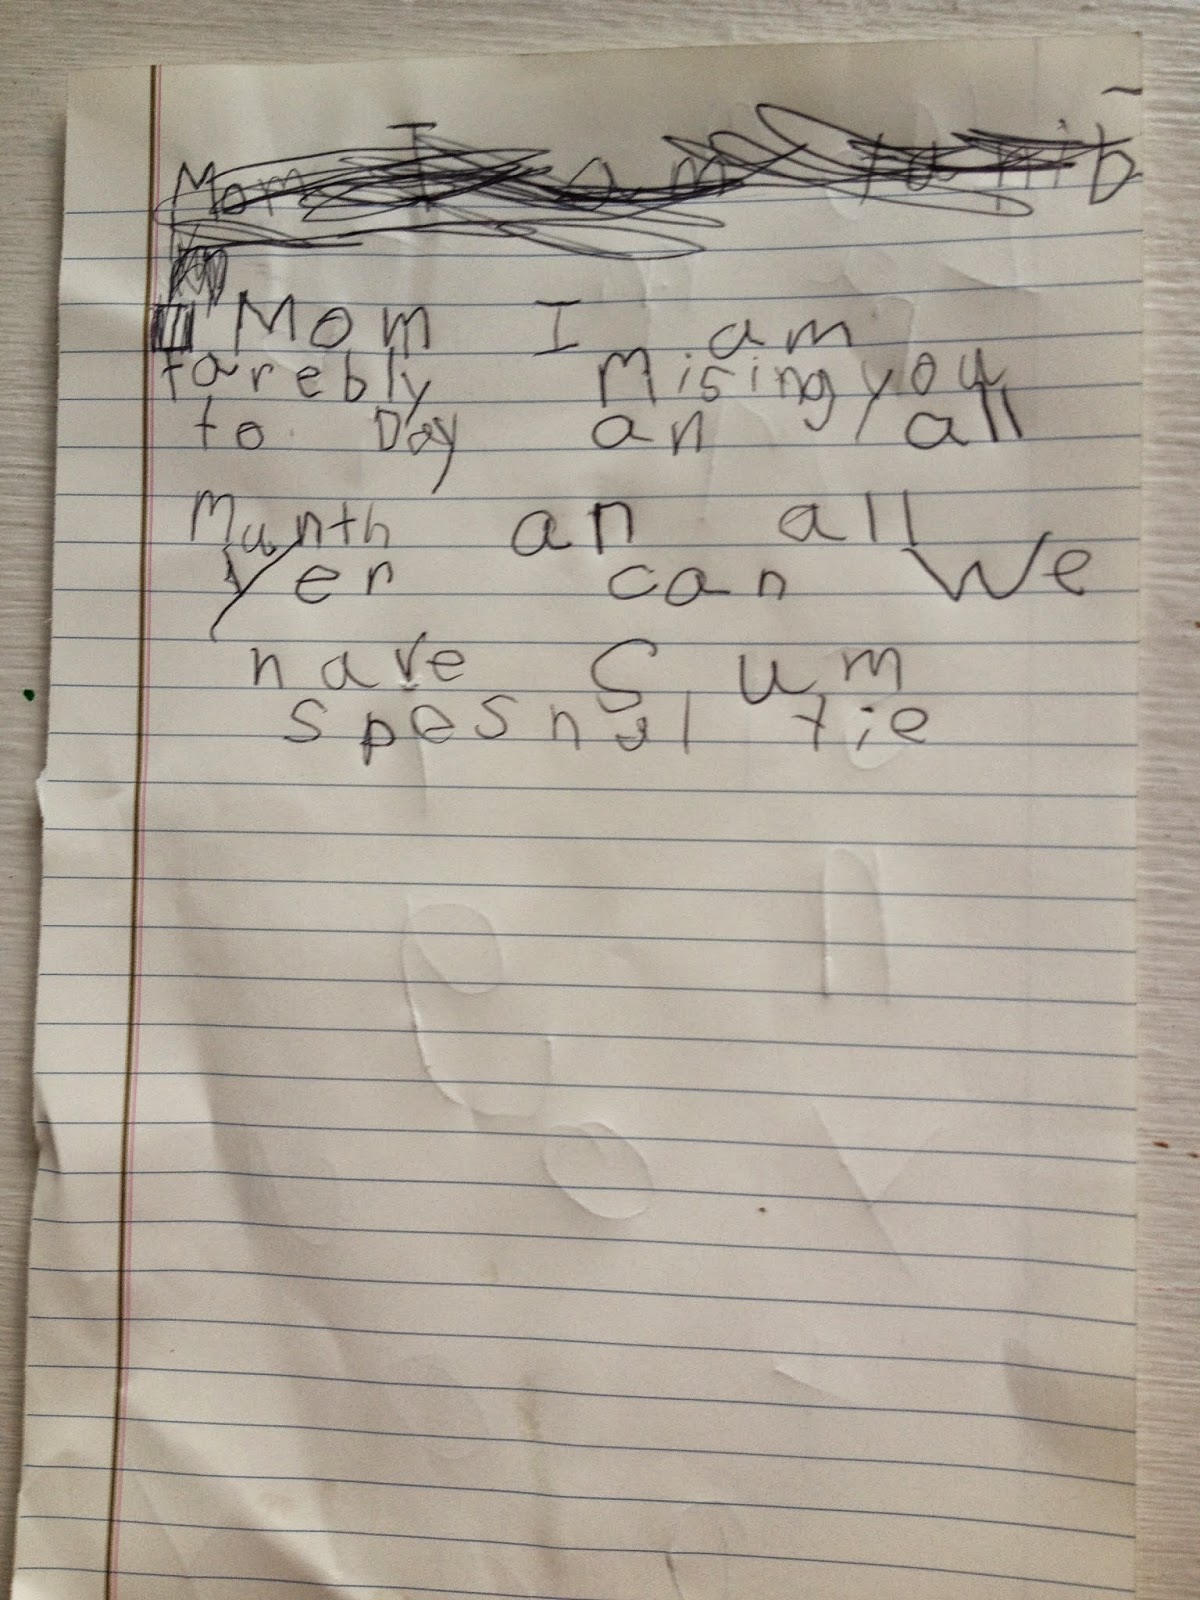 Mom I am
tarebly Mising you
to Day an all
Munth an all
yer can We
have Sum
speshul tie